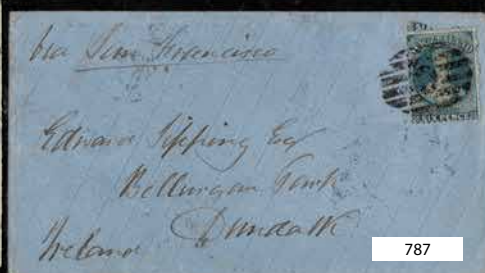 via San Francisco
SIX PENCE
Edward Tipping Esq
Bellurgan Park
Dundalk
Ireland
787